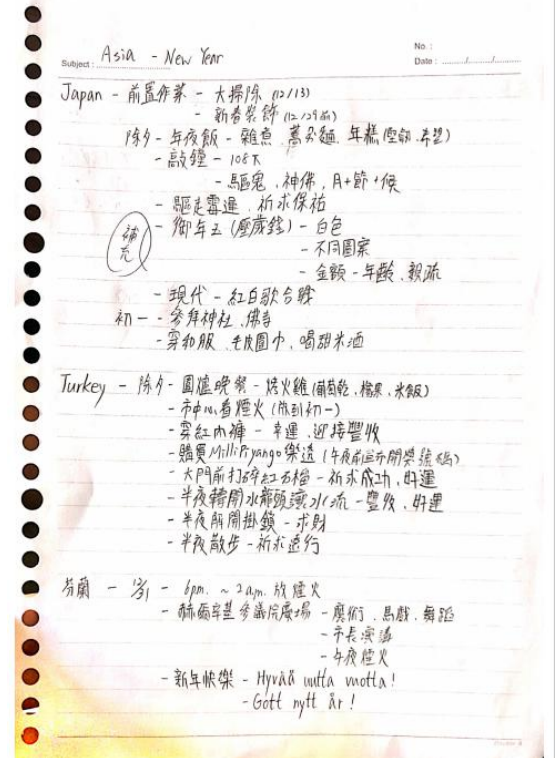 No :
Subject : Asia - New Year
Date : / /
Japan - 前置作業 - 大掃除 (12/13)
- 新春裝飾 (12/29前)
除夕 - 年夜飯 - 雜煮、蕎麥麵、年糕(堅韌、希望)
- 敲鐘 - 108下
- 驅鬼、神佛、月+節+候
- 驅走霉運、祈求保祐
補充
- 御年玉(壓歲錢) - 白色
- 不同圖案
- 金額 - 年齡、親疏
- 現代 - 紅白歌合戰
初一 - 參拜神社、佛寺
- 穿和服、毛皮圍巾、喝甜米酒
Turkey - 除夕 - 圍爐晚餐 - 烤火雞(葡萄乾、榛果、米飯)
- 市中心看煙火(放到初一)
- 穿紅內褲 - 幸運、迎接豐收
- 購買Milli Piyango樂透(午夜前宣布開獎號碼)
- 大門前打碎紅石榴 - 祈求成功、好運
- 半夜轉開水龍頭讓水流 - 豐收、好運
- 半夜解開掛鎖 - 求財
- 半夜散步 - 祈求遠行
芬蘭 - 12/31 - 6pm. ~ 2am. 放煙火
- 赫爾辛基參議院廣場 - 魔術、馬戲、舞蹈
- 市長演講
- 午夜煙火
- 新年快樂 - Hyvää uutta vuotta!
- Gott nytt år!